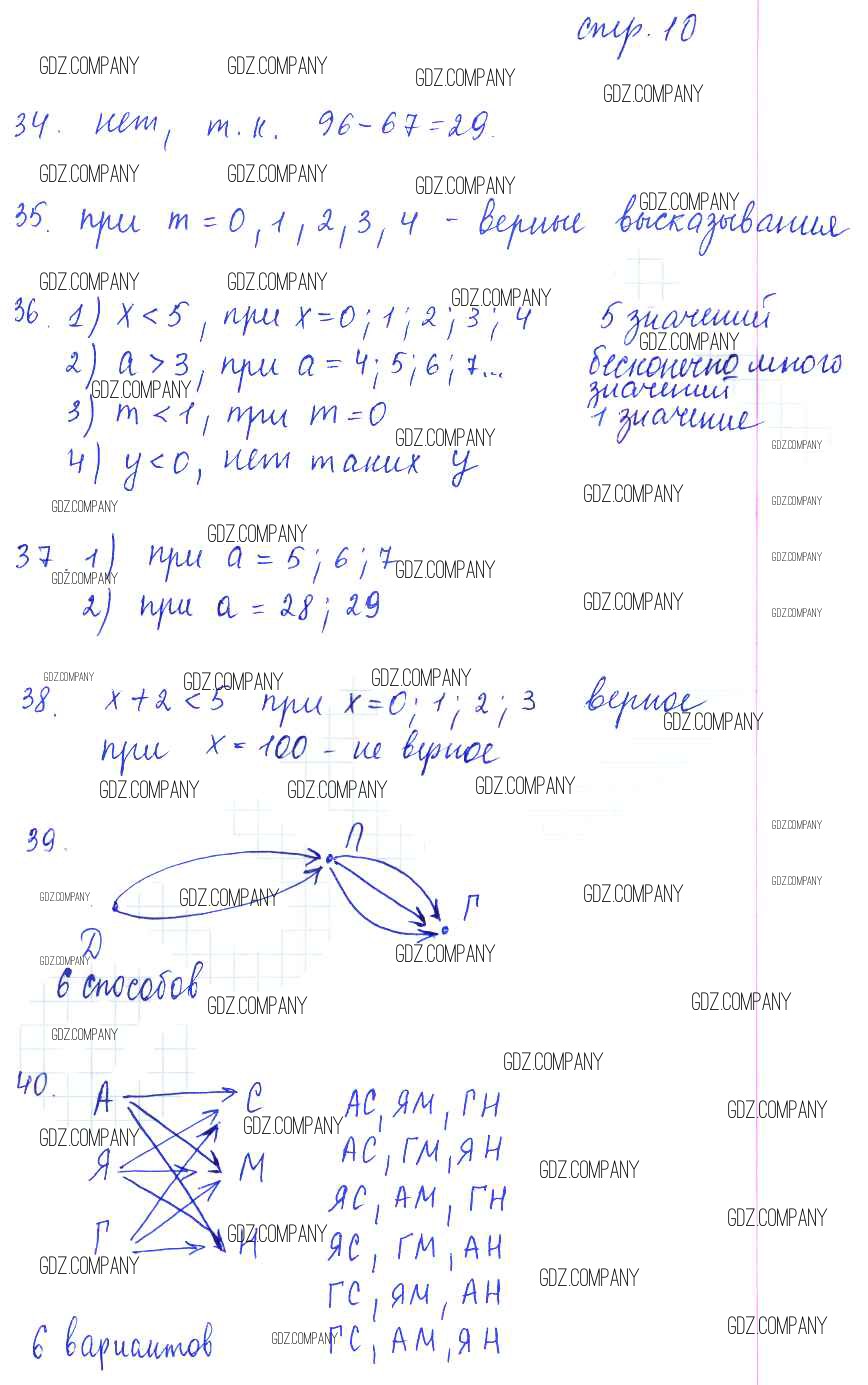 стр. 10
GDZ.COMPANY GDZ.COMPANY GDZ.COMPANY GDZ.COMPANY
34. нет, т.к. 96-67=29.
GDZ.COMPANY GDZ.COMPANY GDZ.COMPANY GDZ.COMPANY
35. при m = 0, 1, 2, 3, 4 - верные высказывания
GDZ.COMPANY GDZ.COMPANY GDZ.COMPANY
36. 1) x < 5, при x = 0; 1; 2; 3; 4 5 значений
GDZ.COMPANY
2) a > 3, при a = 4; 5; 6; 7... бесконечно много
GDZ.COMPANY значений
3) m < 1, при m = 0 1 значение
GDZ.COMPANY GDZ.COMPANY
4) y < 0, нет таких y
GDZ.COMPANY GDZ.COMPANY GDZ.COMPANY
GDZ.COMPANY
37. 1) при a = 5; 6; 7
GDZ.COMPANY GDZ.COMPANY GDZ.COMPANY
2) при a = 28; 29
GDZ.COMPANY GDZ.COMPANY
GDZ.COMPANY GDZ.COMPANY GDZ.COMPANY
38. x + 2 < 5 при x = 0; 1; 2; 3 верное
GDZ.COMPANY
при x = 100 - не верное
GDZ.COMPANY GDZ.COMPANY GDZ.COMPANY
GDZ.COMPANY
39. П
GDZ.COMPANY GDZ.COMPANY GDZ.COMPANY GDZ.COMPANY
Г
Д
GDZ.COMPANY GDZ.COMPANY
6 способов
GDZ.COMPANY GDZ.COMPANY
GDZ.COMPANY
GDZ.COMPANY
40. А С АС, ЯМ, ГН
GDZ.COMPANY GDZ.COMPANY GDZ.COMPANY
Я М АС, ГМ, ЯН
GDZ.COMPANY
ЯС, АМ, ГН
GDZ.COMPANY GDZ.COMPANY
Г Н ЯС, ГМ, АН
GDZ.COMPANY GDZ.COMPANY
ГС, ЯМ, АН
GDZ.COMPANY GDZ.COMPANY
6 вариантов ГС, АМ, ЯН